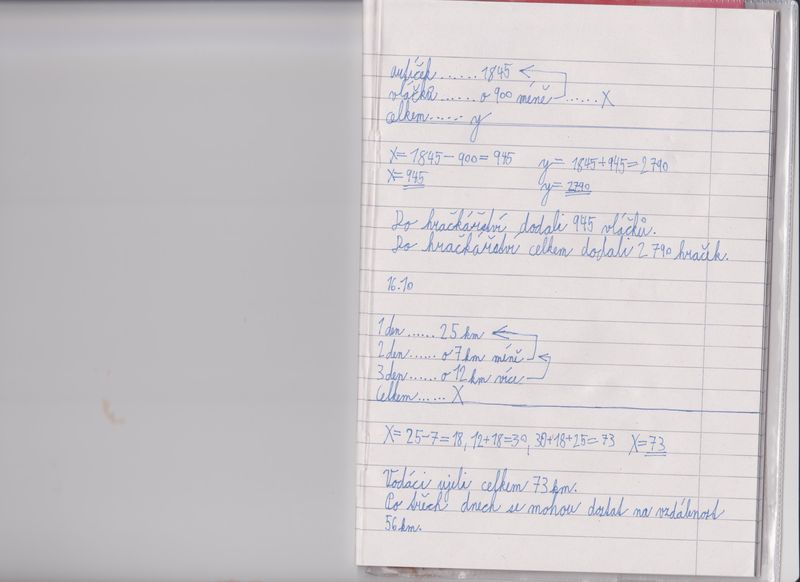 autíček ...... 1845
vláčků ...... o 900 méně ...... X
celkem ..... y
X = 1845 - 900 = 945 y = 1845 + 945 = 2790
X = 945 y = 2790
Do hračkářství dodali 945 vláčků.
Do hračkářství celkem dodali 2 790 hraček.
16.10
1 den ...... 25 km
2 den ...... o 7 km méně
3 den ...... o 12 km více
Celkem ...... X
X = 25-7 = 18, 12+18 = 30, 30+18+25 = 73 X = 73
Vodáci ujeli celkem 73 km.
Po třech dnech se mohou dostat na vzdálenost
56 km.